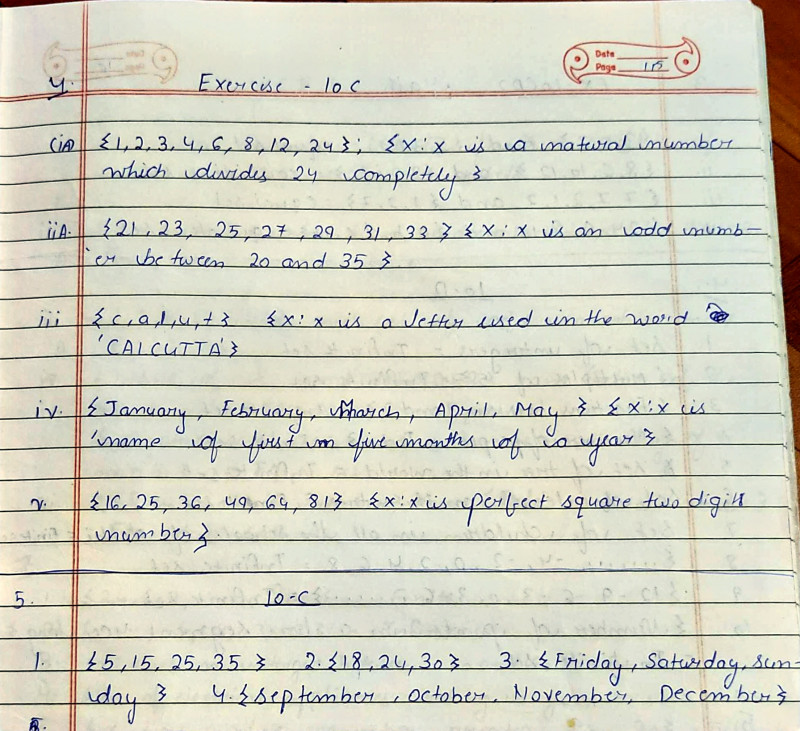 Date
Page 115
4. Exercise - 10 C
(iA) {1, 2, 3, 4, 6, 8, 12, 24}; {x : x is a natural number
which divides 24 completely}
iiA. {21, 23, 25, 27, 29, 31, 33} {x : x is an odd numb-
er between 20 and 35}
iii {c, a, l, u, t} {x : x is a letter used in the word
'CALCUTTA'}
iv. {January, February, March, April, May} {x : x is
name of first five months of a year}
v. {16, 25, 36, 49, 64, 81} {x : x is perfect square two digit
number}.
5. 10-C
1. {5, 15, 25, 35} 2. {18, 24, 30} 3. {Friday, Saturday, Sun-
day} 4. {September, October, November, December}